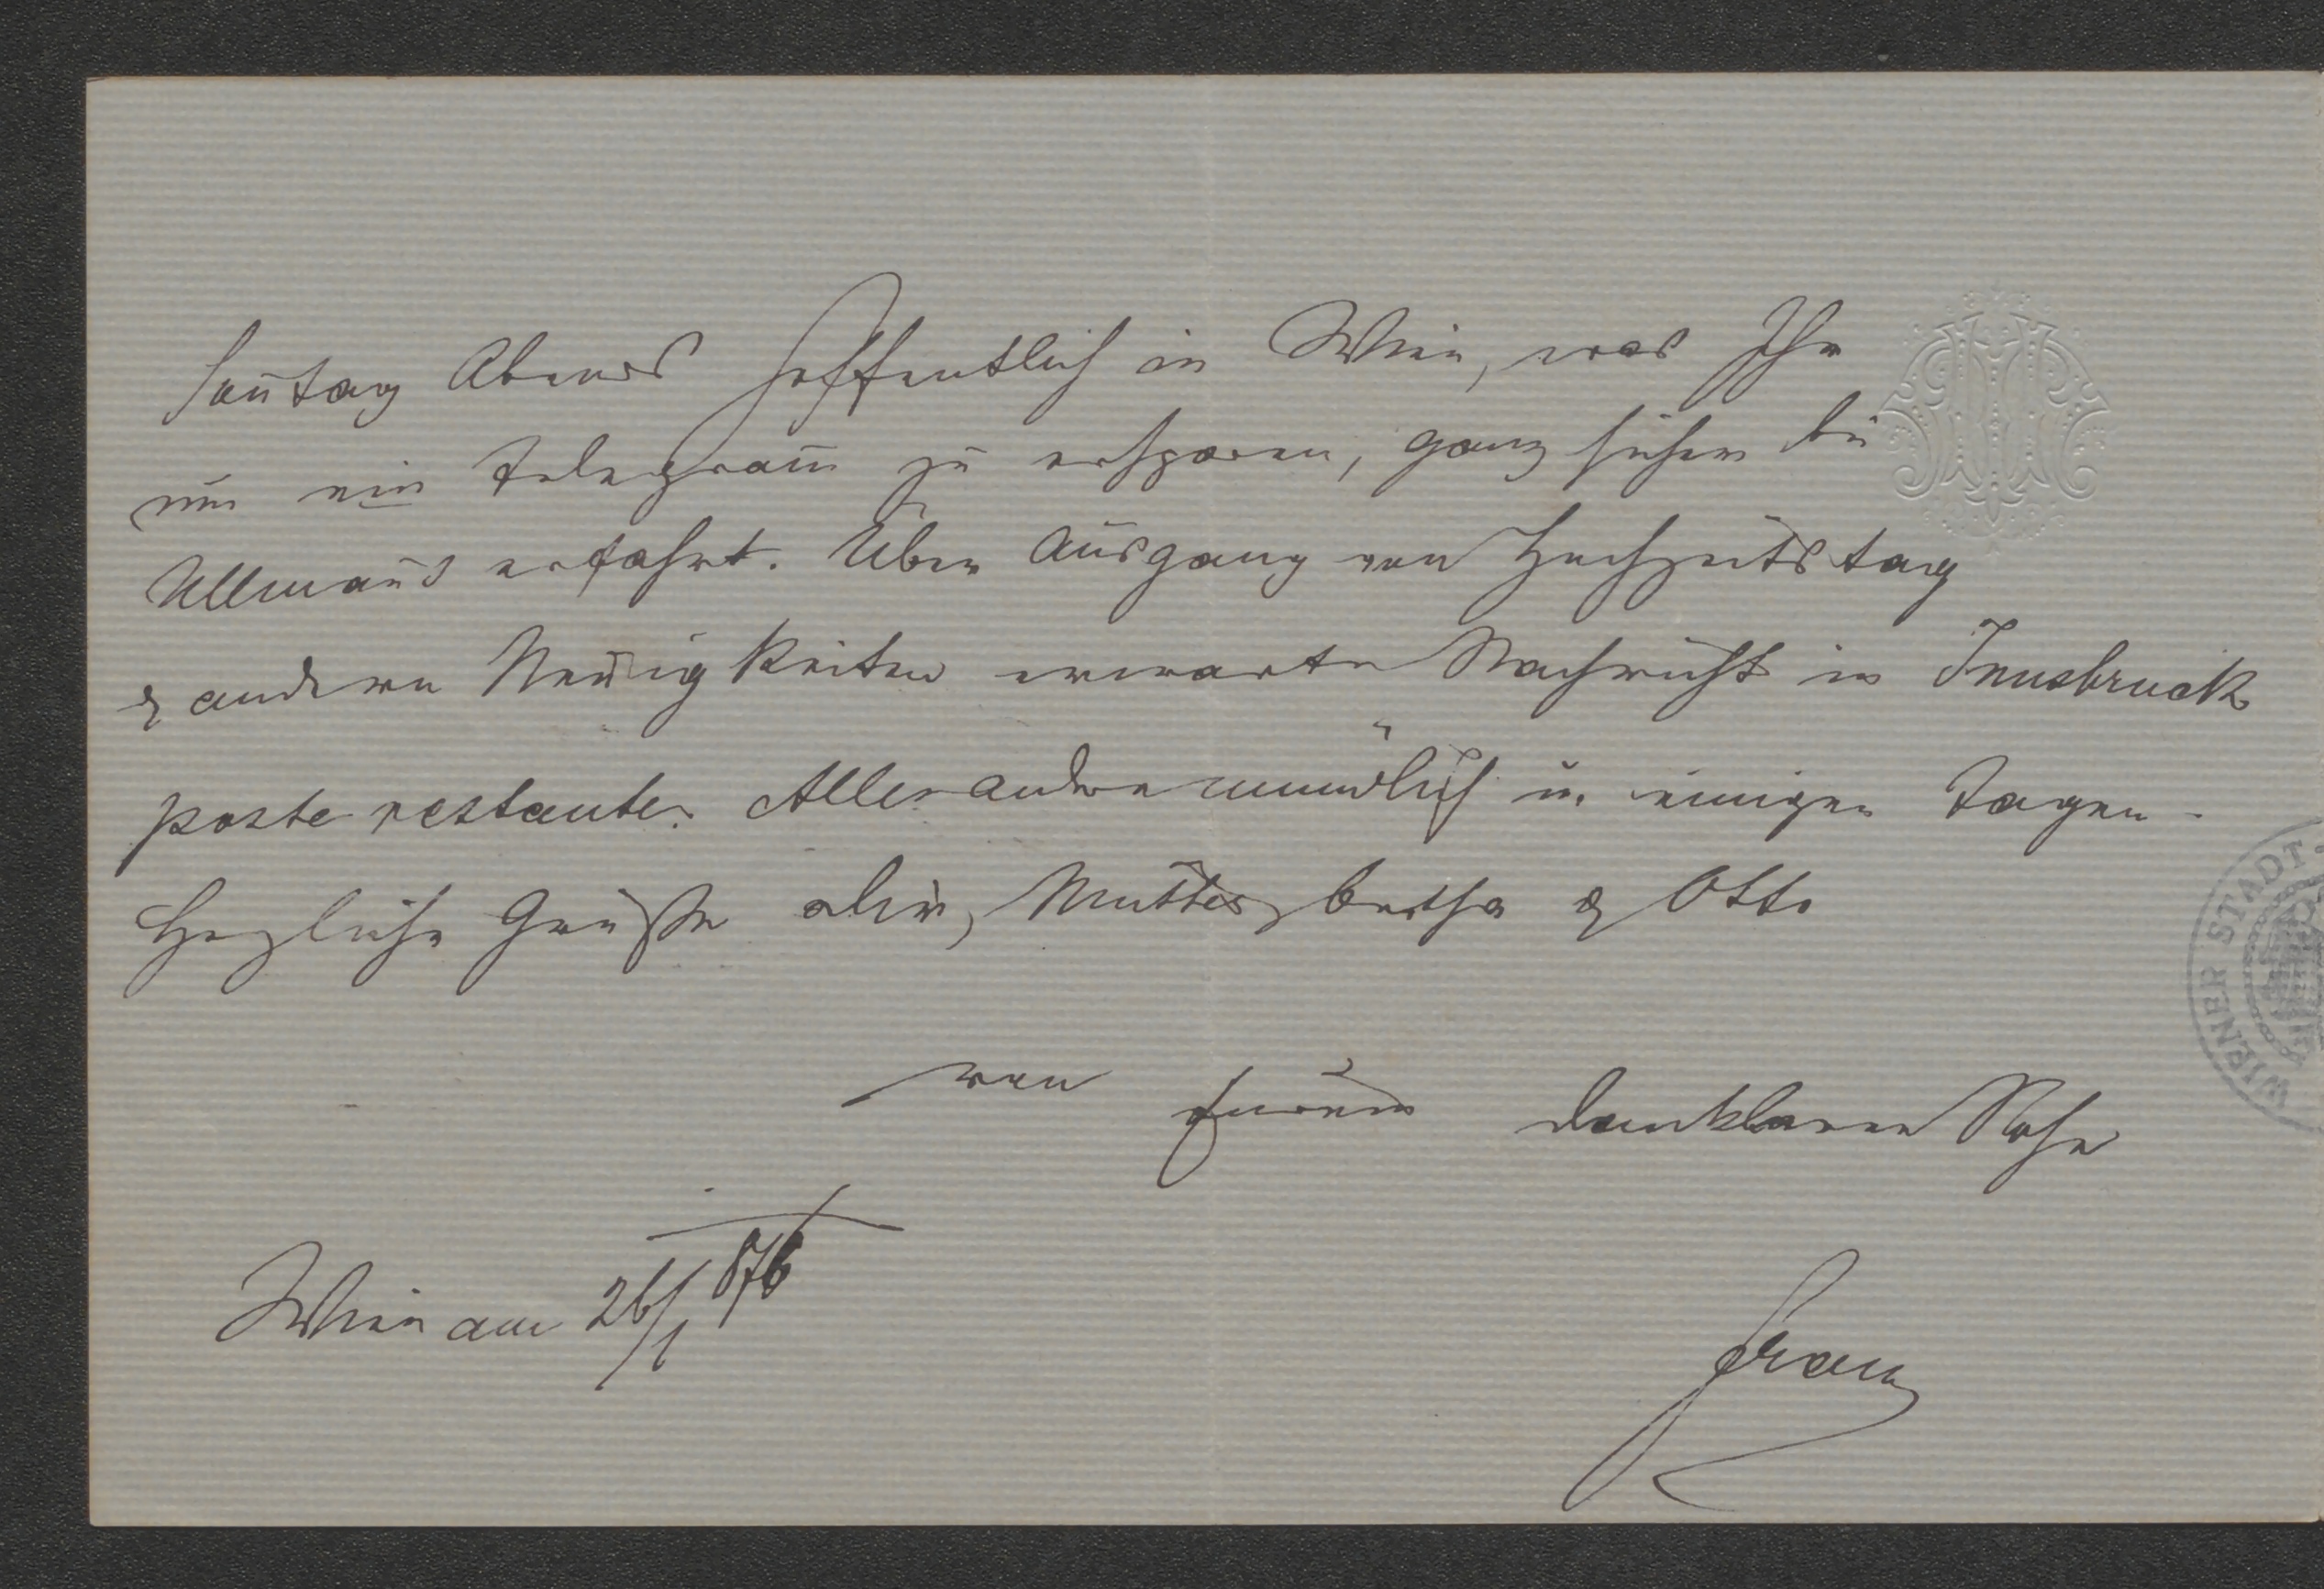 Son̄tag Abends hoffentlich in Wien, was Ihr
um ein Telegram̄ zu ersparen, ganz sicher bei
Ullman̄s erfahrt. Über Ausgang von Hochzeitstag
& andern Neuigkeiten erwarte Nachricht in Innsbruck
poste restante. Alles andere mündlich in einigen Tagen.
Herzliche Grüße alln, Mutter, Bertha & Otto
von Eurem dankbaren Sohn
Wien am 26/1 876
Franz
WIENER STADT